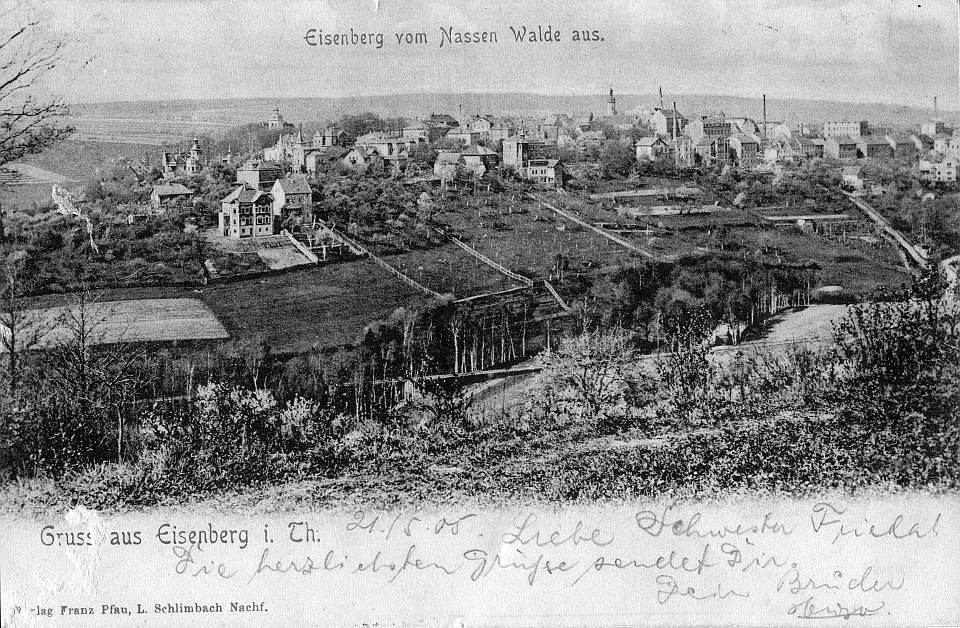 Eisenberg vom Nassen Walde aus.
Gruss aus Eisenberg i. Th. 21/5 05. Liebe Schwester Frieda!
Die herzlichsten Grüsse sendet Dir
Dein Bruder
Verlag Franz Pfau, L. Schlimbach Nachf.